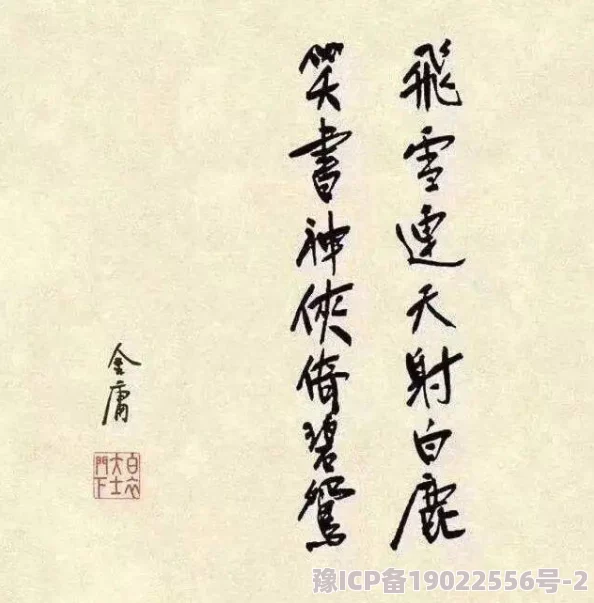 飛雪連天射白鹿
笑書神俠倚碧鴛
金庸
白衣大士門下
豫ICP备19022556号-2